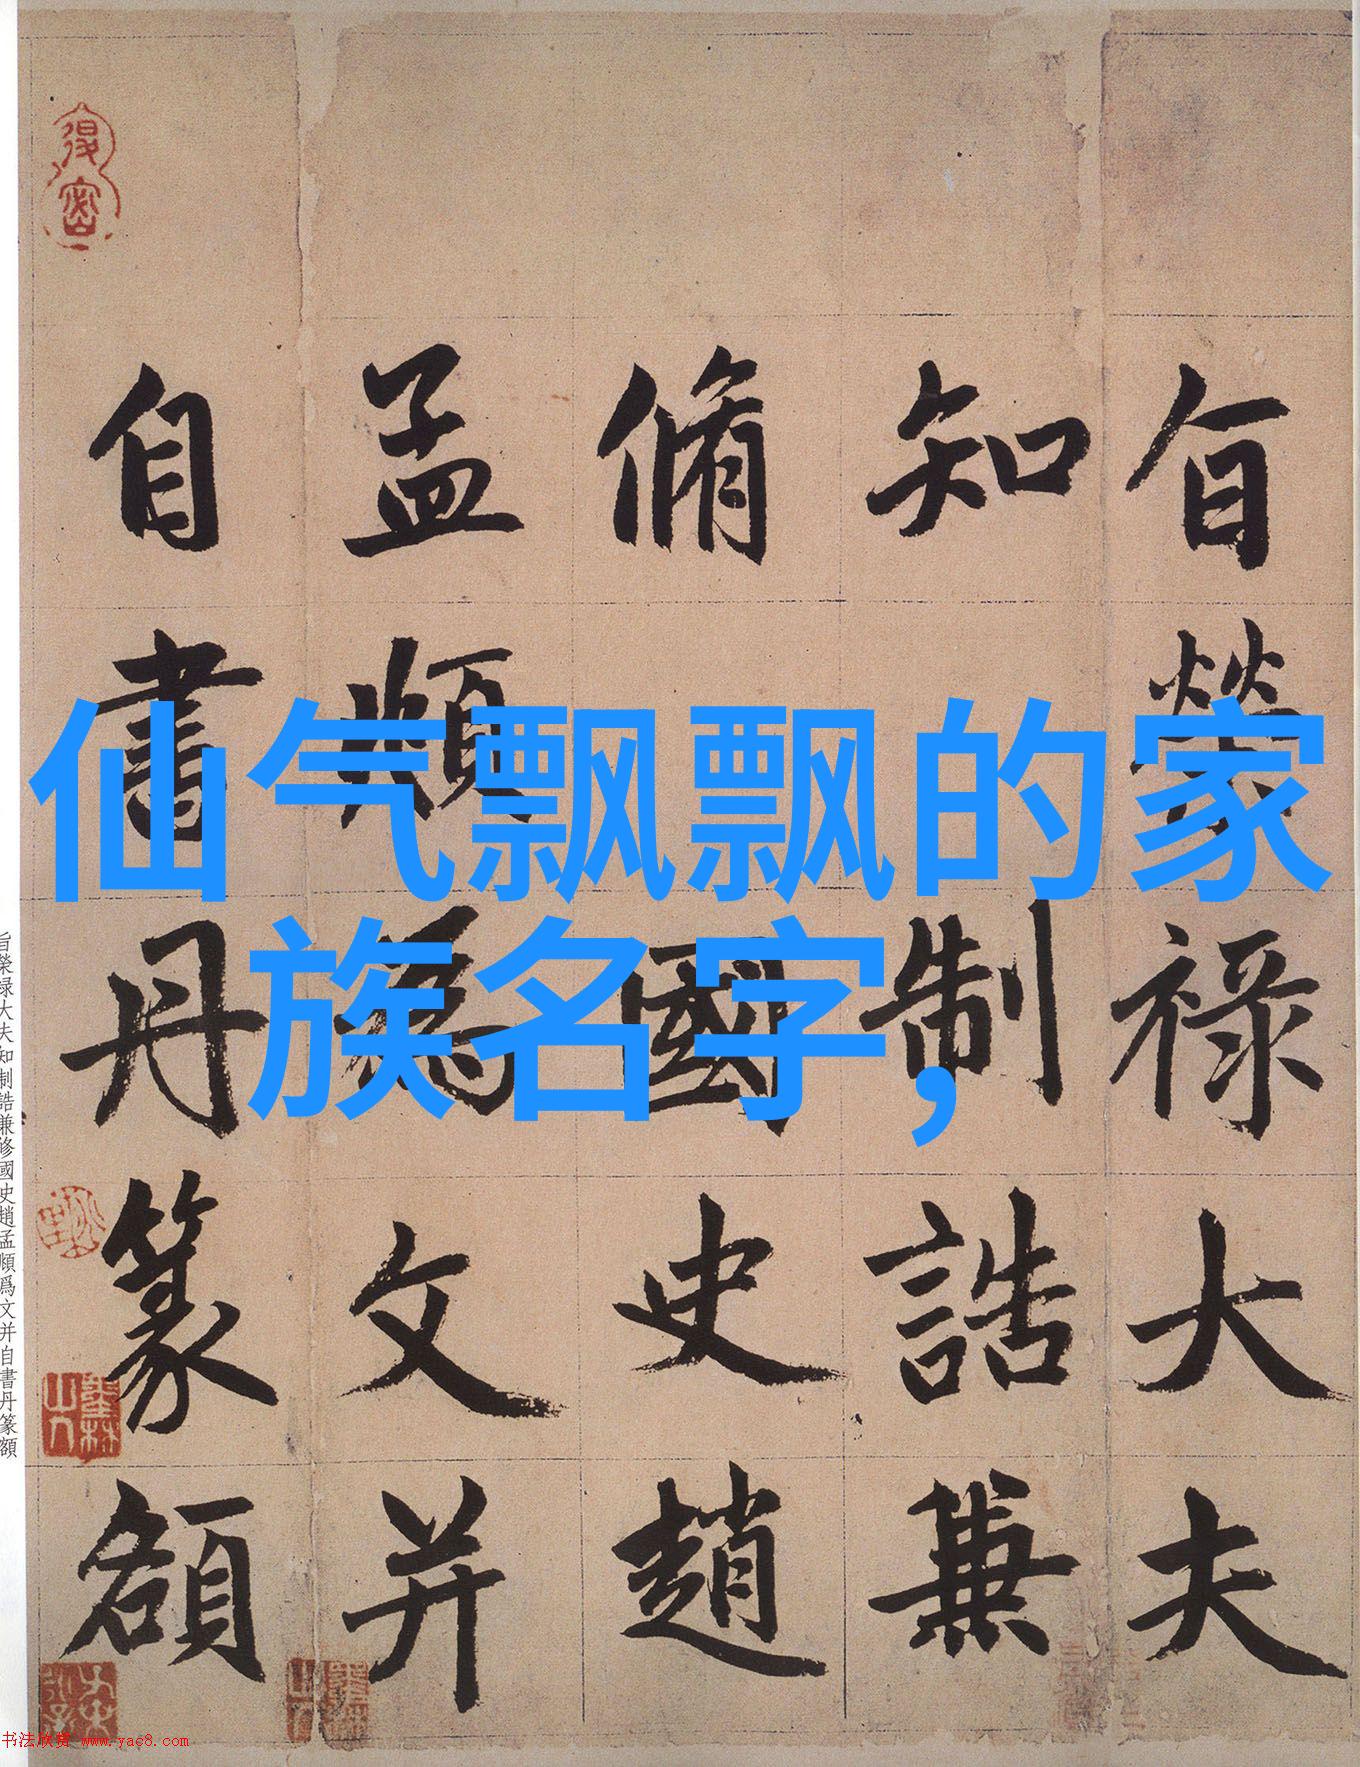 旨榮祿大夫
知制誥兼
脩國史趙
孟頫爲文并
自書丹篆額
仙气飘飘的家
族名字,
旨榮禄大夫知制誥兼修國史趙孟頫爲文并自書丹篆額
书法欣赏 www.yac8.com